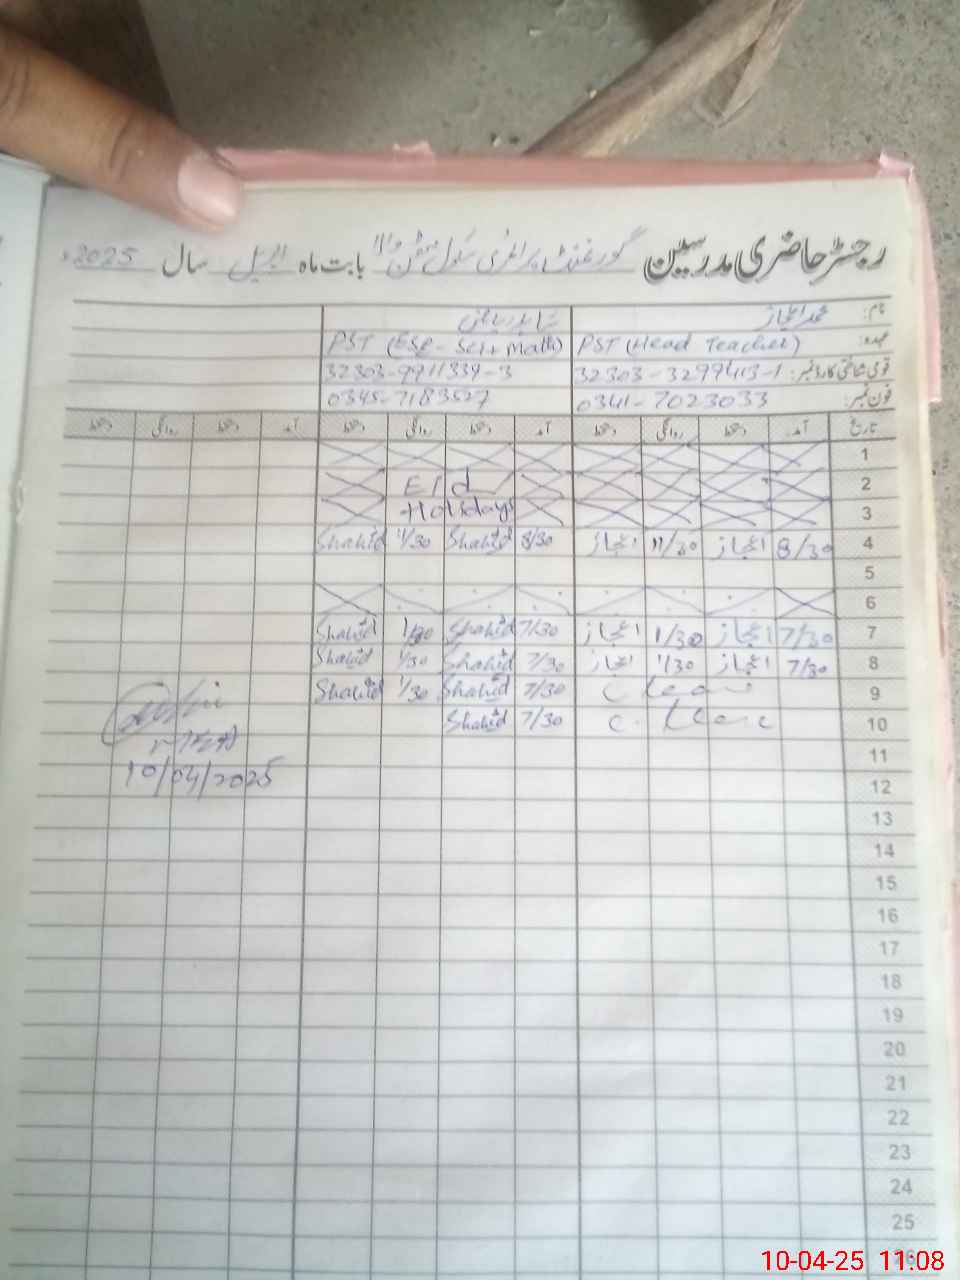 رجسٹر حاضری مدرسین گورنمنٹ پرائمری سکول بابت ماہ اپریل سال 2025ء
نام: محمد اعجاز
عہدہ: PST (Head Teacher) PST (ESE - Sci + Math)
قومی شناختی کارڈ نمبر: 32303-3299413-1 32303-9911339-3
فون نمبر: 0341-7023033 0345-7183527
تاریخ آمد دستخط روانگی دستخط آمد دستخط روانگی دستخط آمد دستخط روانگی دستخط
1
2 Eid
3 Holidays
4 8/30 اعجاز 11/30 اعجاز 8/30 Shahid 11/30 Shahid
5
6
7 7/30 اعجاز 1/30 اعجاز 7/30 Shahid 1/30 Shahid
8 7/30 اعجاز 1/30 اعجاز 7/30 Shahid 1/30 Shahid
9 7/30 Shahid 1/30 Shahid
10 7/30 Shahid
11
10/04/2025
12
13
14
15
16
17
18
19
20
21
22
23
24
25
26
10-04-25 11:08